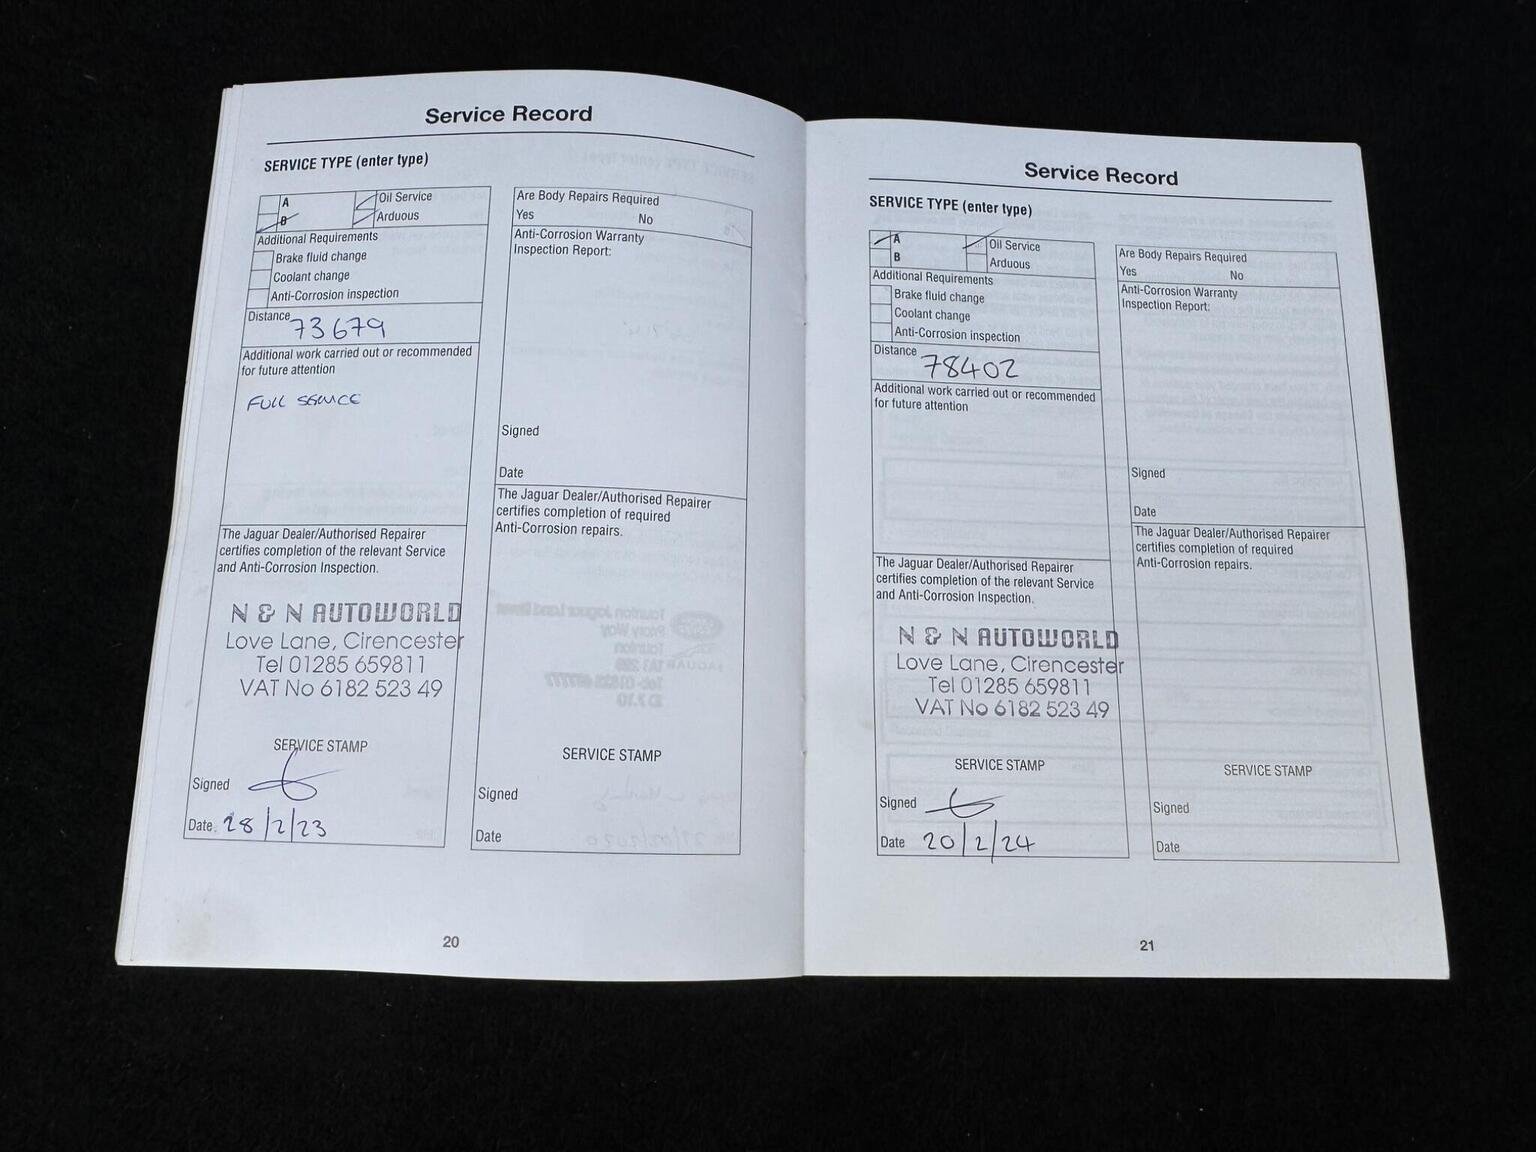 Service Record
SERVICE TYPE (enter type)
A
Oil Service
B
Arduous
Additional Requirements
Brake fluid change
Coolant change
Anti-Corrosion inspection
Distance
73679
Additional work carried out or recommended
for future attention
FULL SERVICE
The Jaguar Dealer/Authorised Repairer
certifies completion of the relevant Service
and Anti-Corrosion Inspection.
N & N AUTOWORLD
Love Lane, Cirencester
Tel 01285 659811
VAT No 6182 523 49
SERVICE STAMP
Signed
Date 28/2/23
Are Body Repairs Required
Yes No
Anti-Corrosion Warranty
Inspection Report:
Signed
Date
The Jaguar Dealer/Authorised Repairer
certifies completion of required
Anti-Corrosion repairs.
SERVICE STAMP
Signed
Date
20
Service Record
SERVICE TYPE (enter type)
A
Oil Service
B
Arduous
Additional Requirements
Brake fluid change
Coolant change
Anti-Corrosion inspection
Distance
78402
Additional work carried out or recommended
for future attention
The Jaguar Dealer/Authorised Repairer
certifies completion of the relevant Service
and Anti-Corrosion Inspection.
N & N AUTOWORLD
Love Lane, Cirencester
Tel 01285 659811
VAT No 6182 523 49
SERVICE STAMP
Signed
Date 20/2/24
Are Body Repairs Required
Yes No
Anti-Corrosion Warranty
Inspection Report:
Signed
Date
The Jaguar Dealer/Authorised Repairer
certifies completion of required
Anti-Corrosion repairs.
SERVICE STAMP
Signed
Date
21